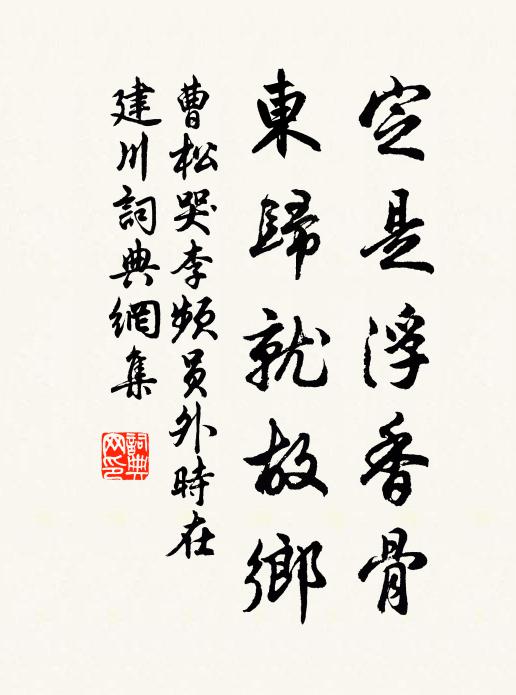 定是浮香骨
東歸就故鄉
曹松哭李頻員外時在
建川詞典網集
詞典
网印